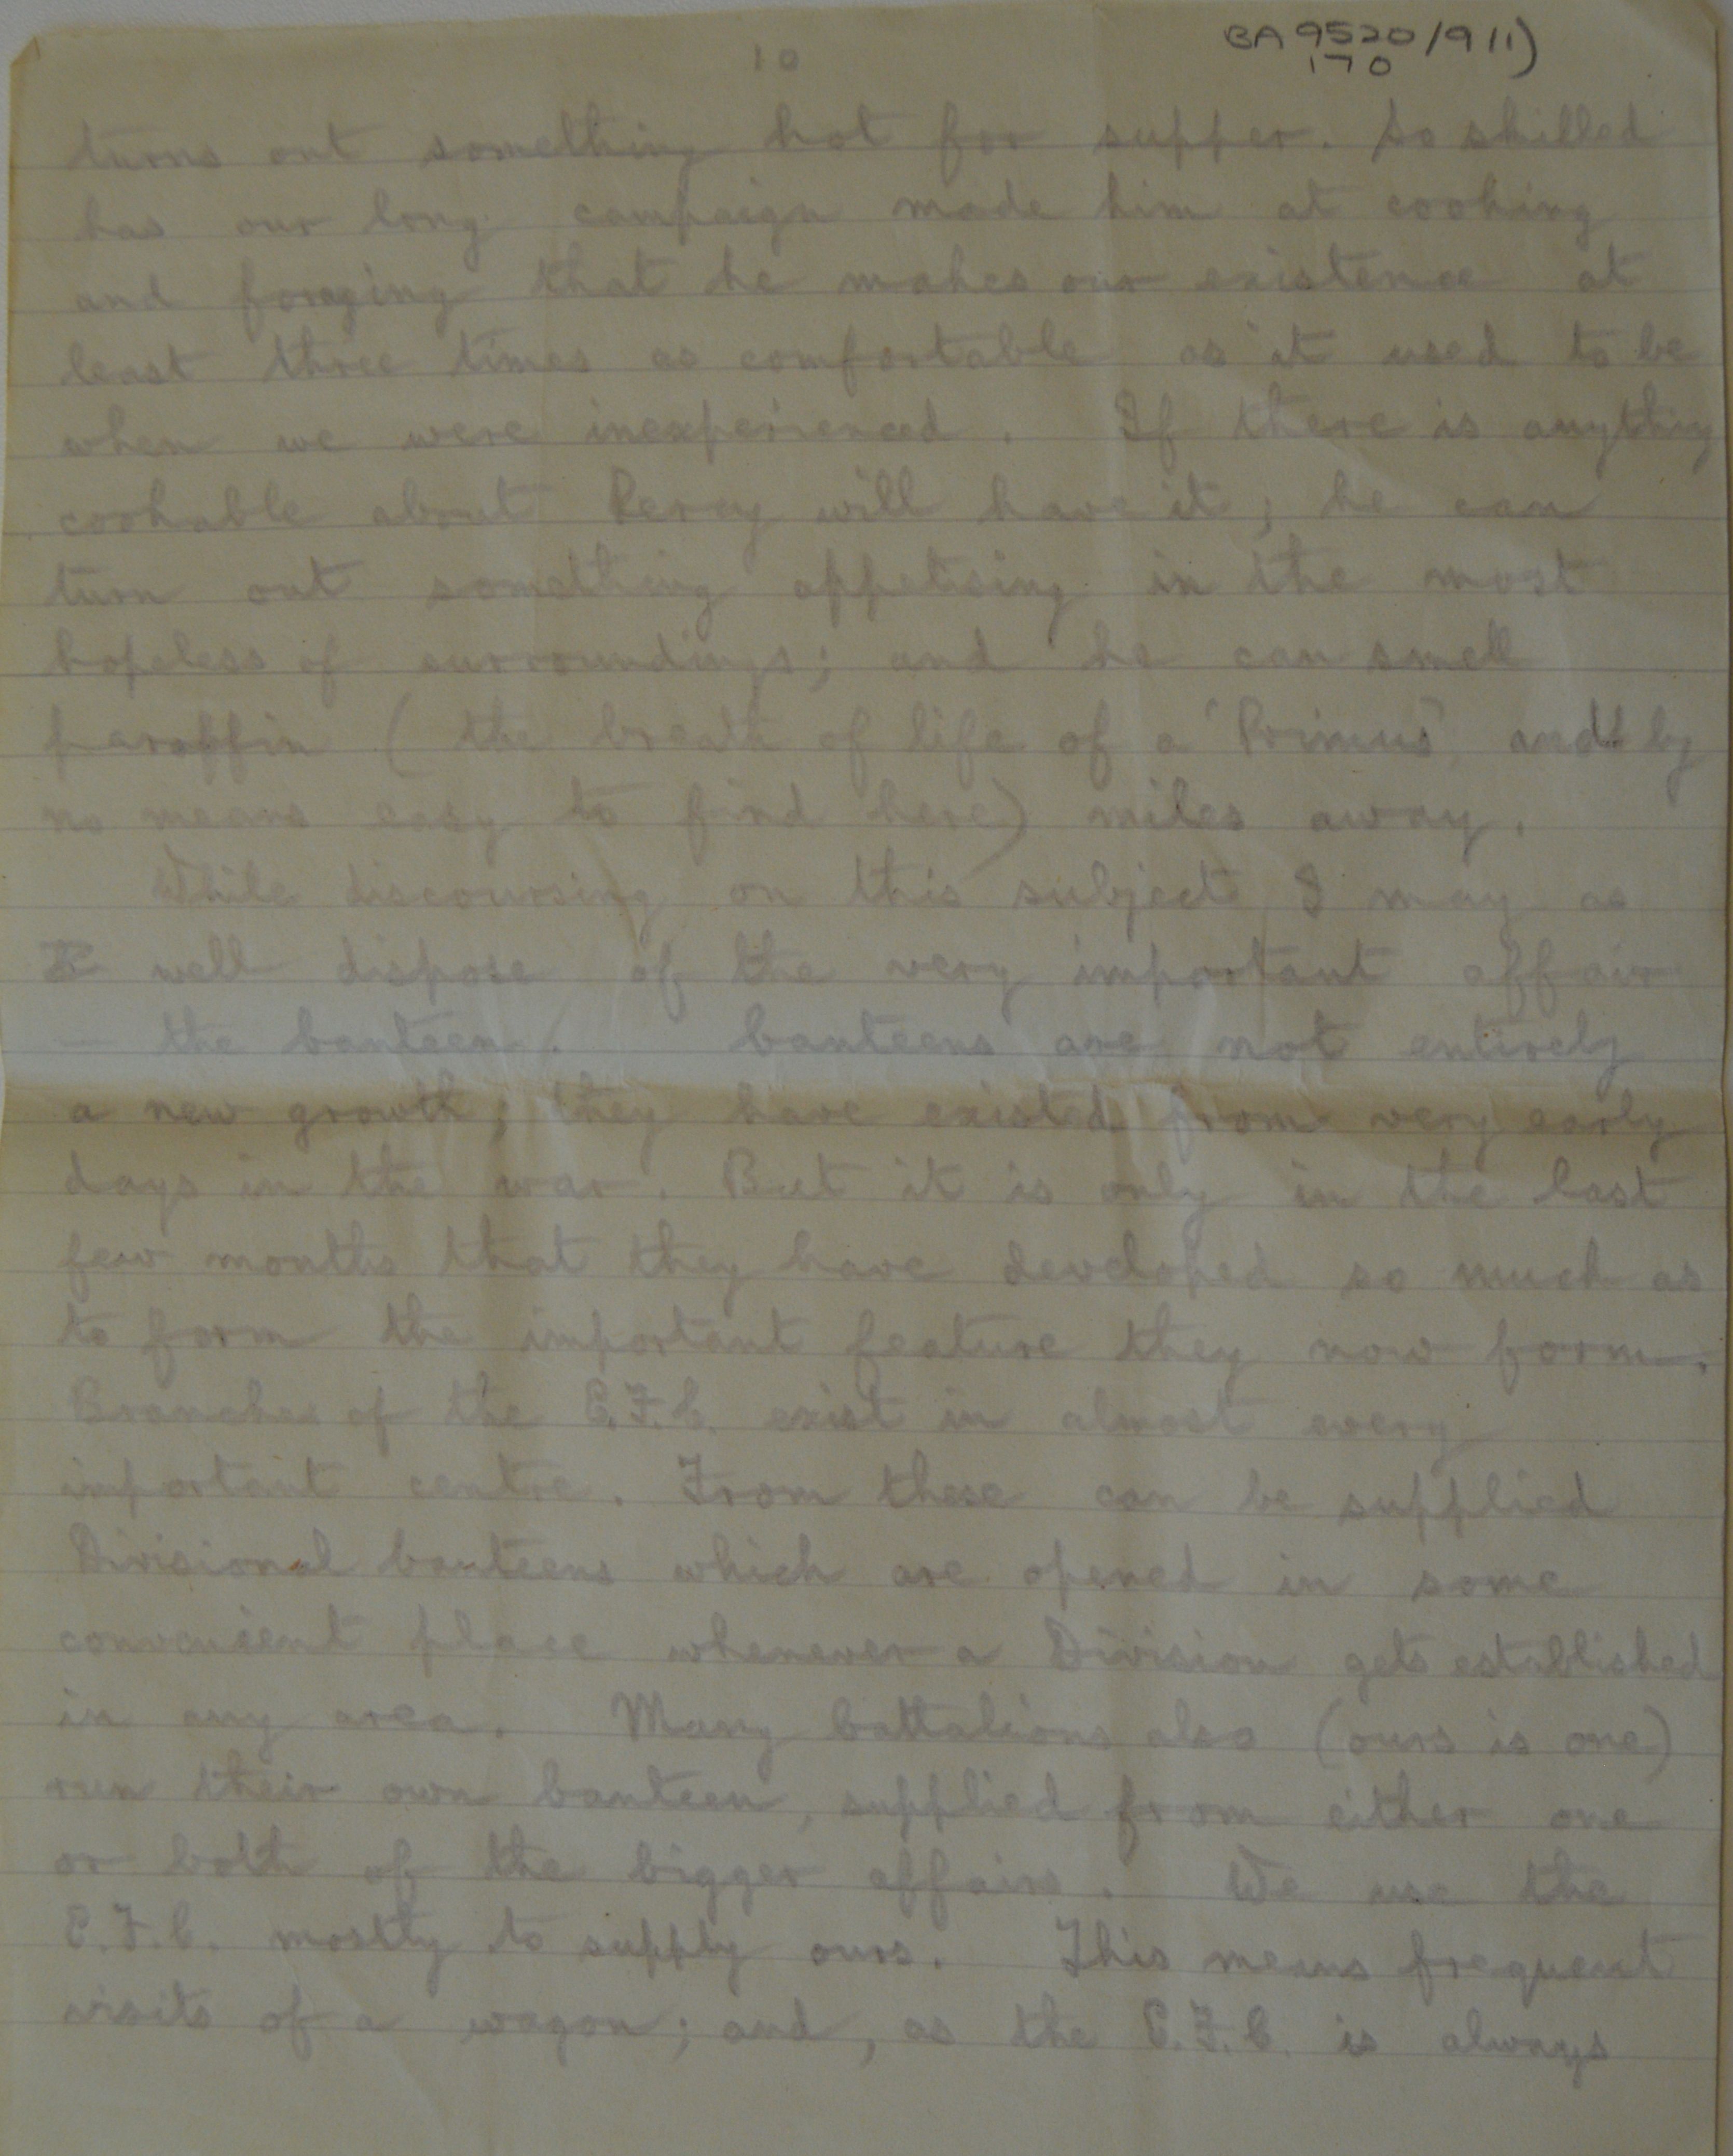 10
BA 9520/9 (1)
170
turns out something hot for supper. So skilled
has our long campaign made him at cooking
and foraging that he makes our existence at
least three times as comfortable as it used to be
when we were inexperienced. If there is anything
cookable about Percy will have it; he can
turn out something appetising in the most
hopeless of surroundings; and he can smell
paraffin (the breath of life of a 'Primus', and by
no means easy to find here) miles away.
While discoursing on this subject I may as
well dispose of the very important affair
— the Canteen. Canteens are not entirely
a new growth; they have existed from very early
days in the war. But it is only in the last
few months that they have developed so much as
to form the important feature they now form.
Branches of the E.F.C. exist in almost every
important centre. From these can be supplied
Divisional Canteens which are opened in some
convenient place whenever a Division gets established
in any area. Many battalions also (ours is one)
run their own Canteen, supplied from either one
or both of the bigger affairs. We use the
E.F.C. mostly to supply ours. This means frequent
visits of a wagon; and, as the E.F.C. is always